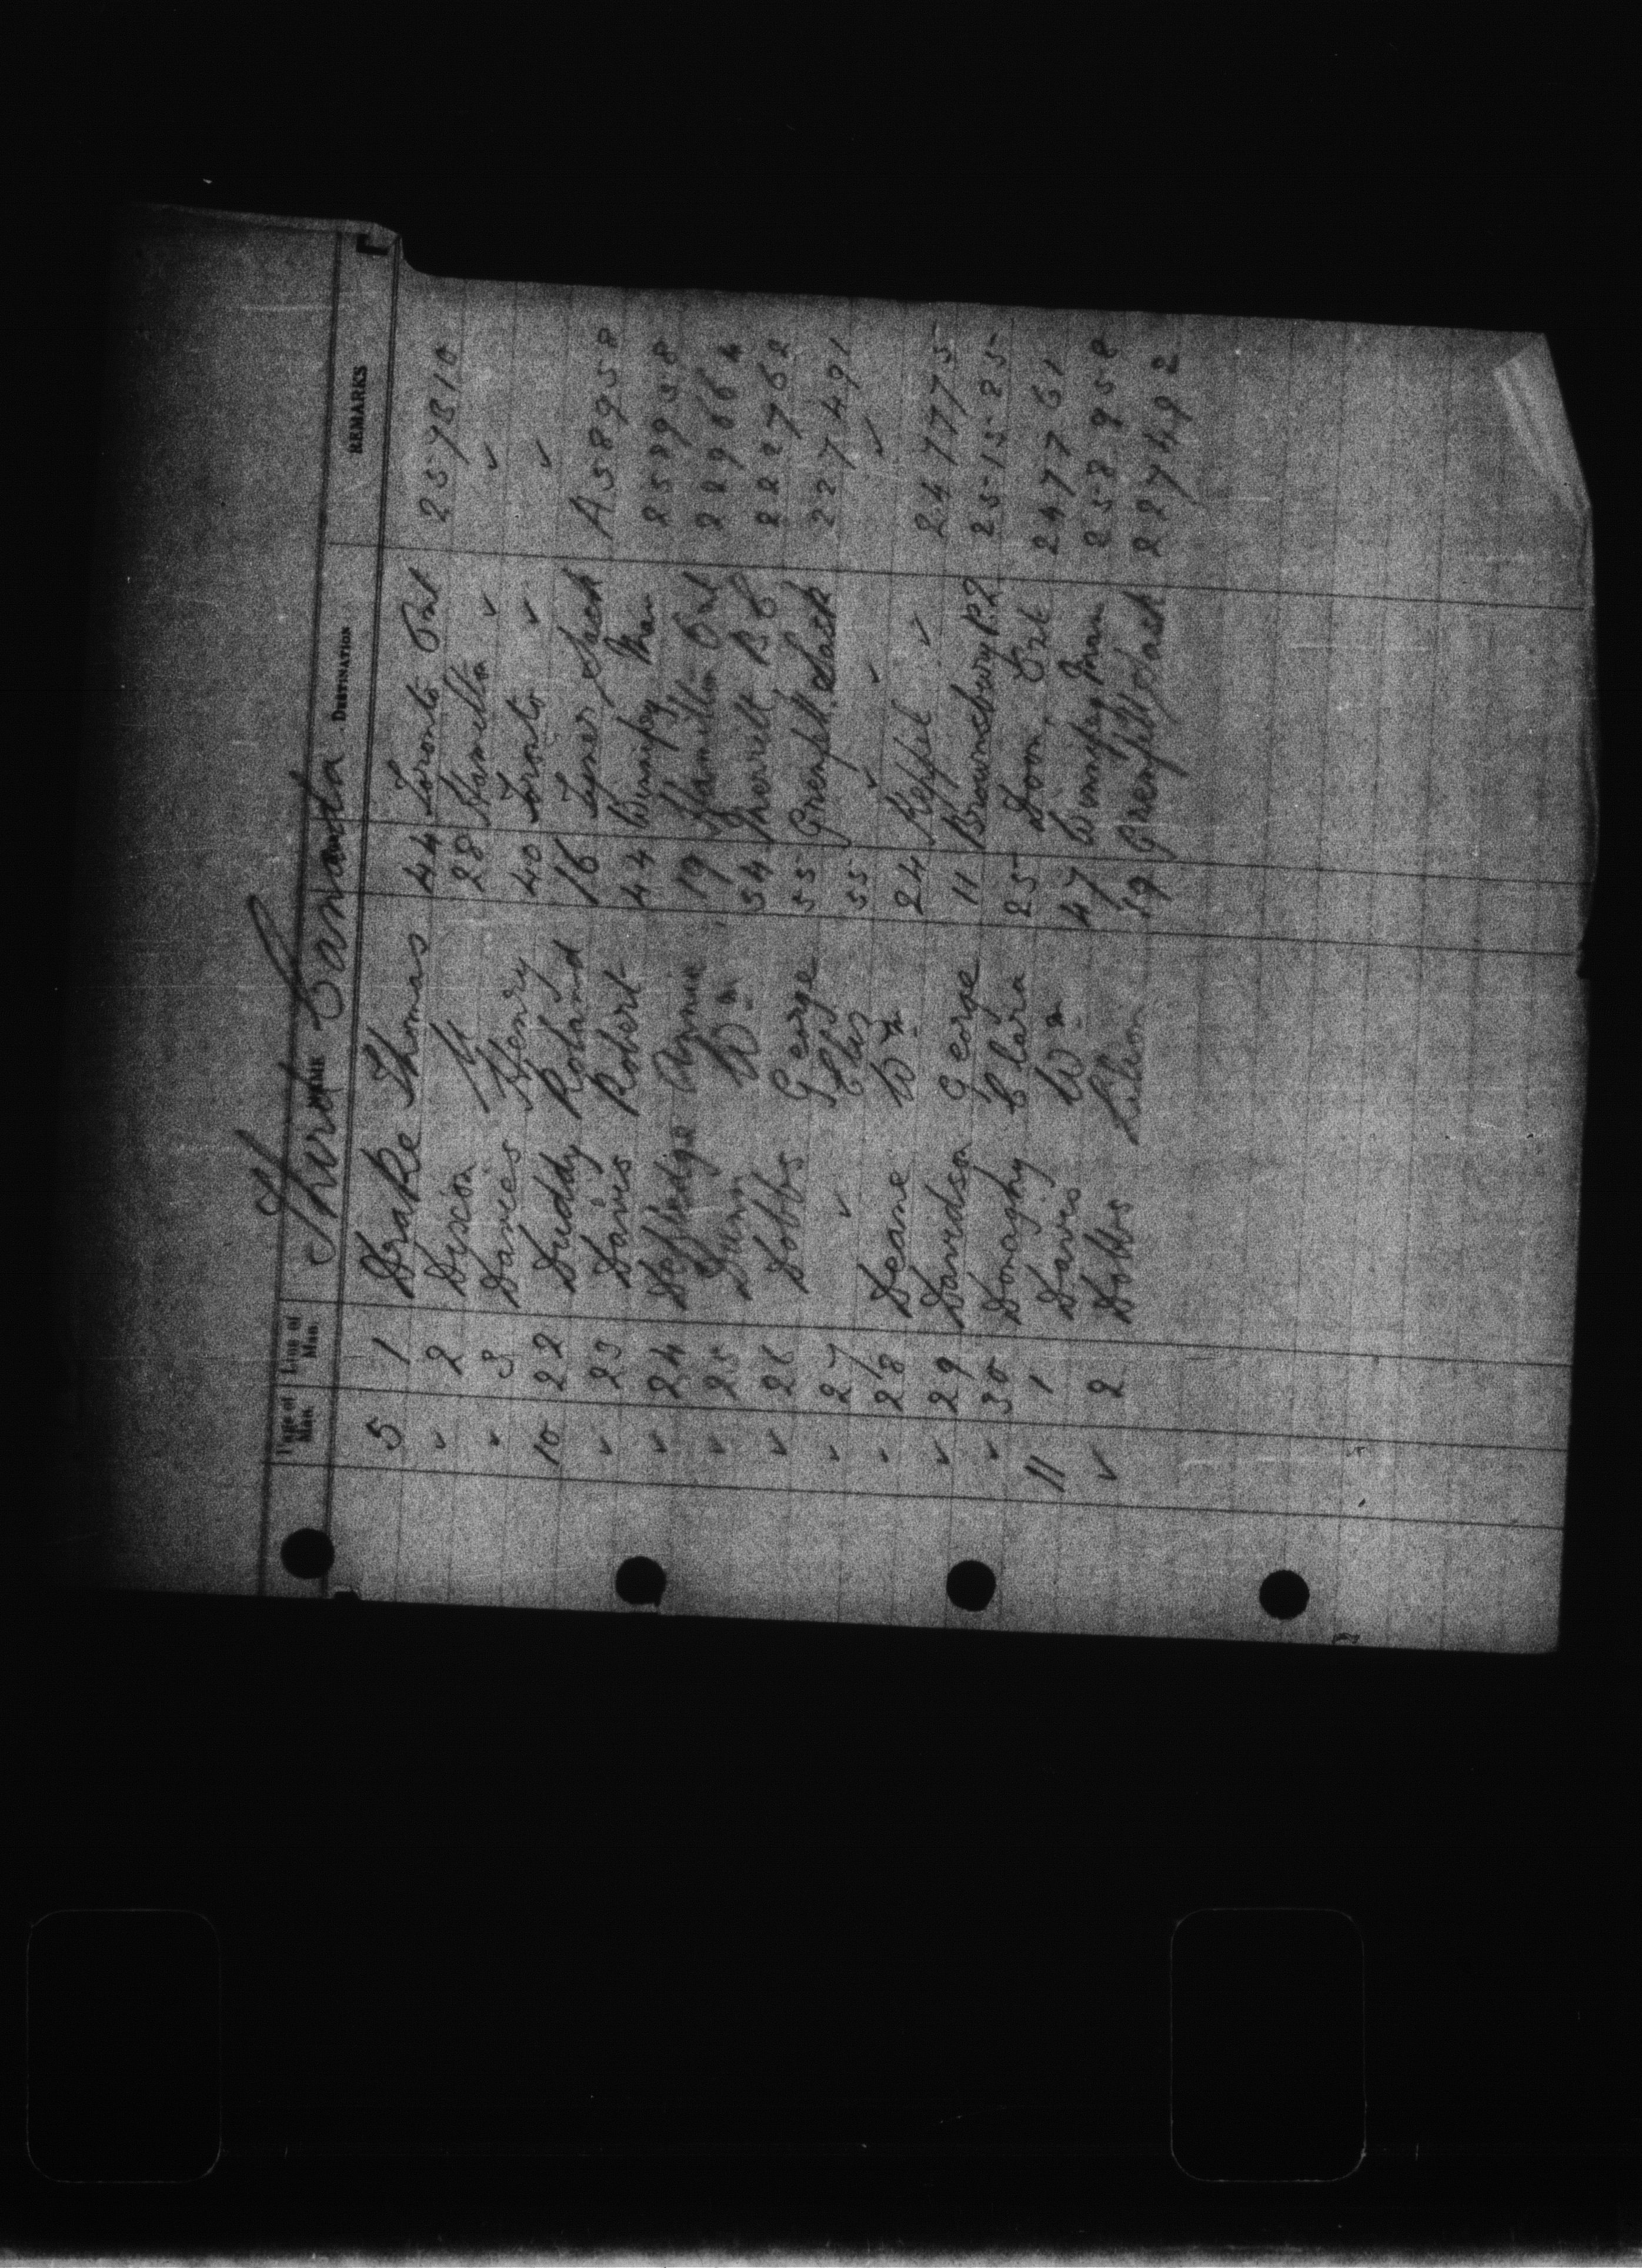 Third Canada
Page of Man. Line of Man. NAME DESTINATION REMARKS
5 1 Drake Thomas 44 Toronto Ont 2579310
✓ 2 Dixon 28 Hamilton ✓ ✓
✓ 3 Davies Henry 40 Toronto ✓ ✓
10 22 Duddy Roland 16 Tyner Sask A589958
✓ 23 Davies Robert 44 Winnipeg Man 2589958
✓ 24 Annie 19 Hamilton Ont 2296664
✓ 25 Dunn Wm 54 Merritt B C 2227762
✓ 26 Dobbs George 55 Grenfell Sask 2274491
✓ 27 ✓ Chas 55 ✓ ✓ ✓
✓ 28 Deane Wm 24 Keppel ✓ 2477775
✓ 29 Davidson George 11 Brownsbury P.Q. 2515285
✓ 30 Donaghy Clara 25 Doon Ont 2477761
11 1 Davis Wm 47 Winnipeg Man 2589958
✓ 2 Dobbs 19 Grenfell Sask 2274492